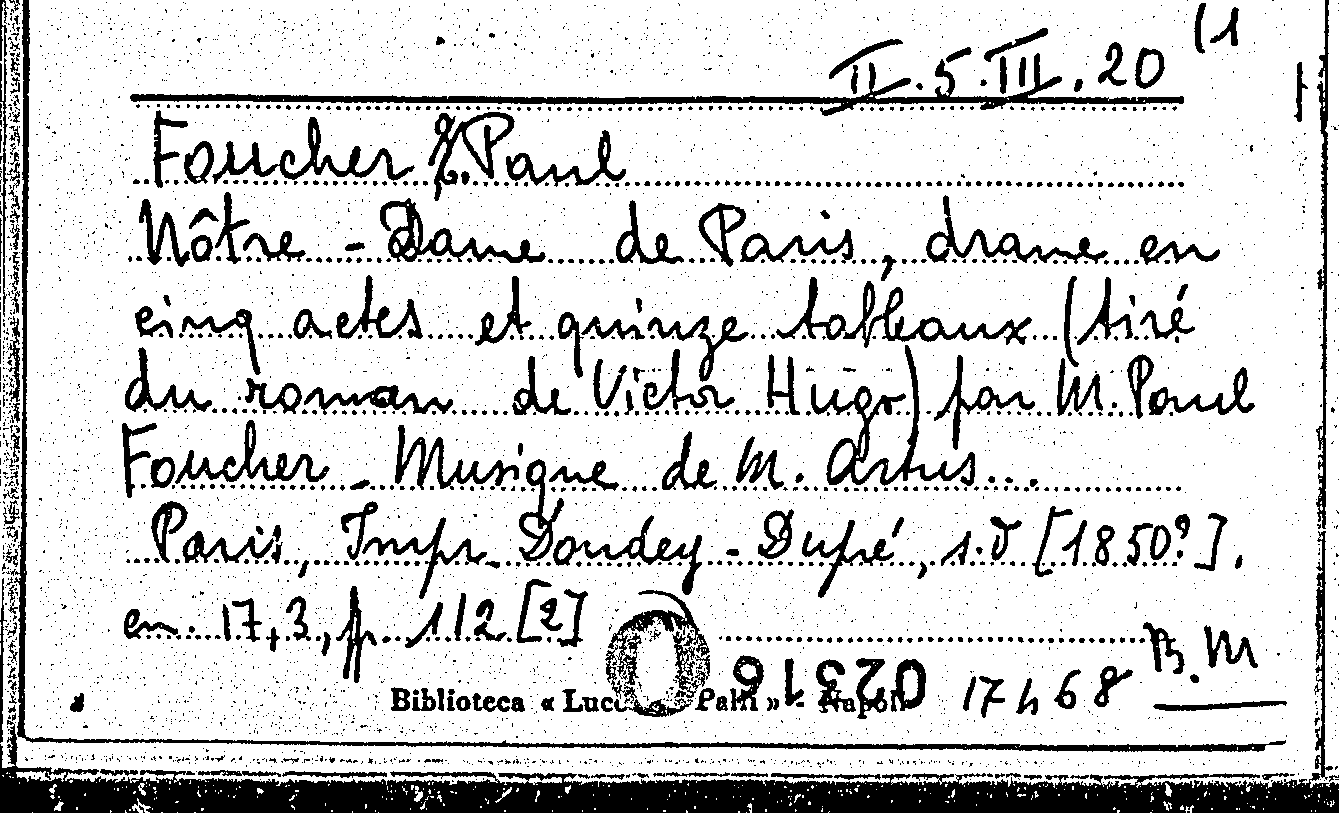 II.5.III.20 (1
Foucher Paul
Nôtre-Dame de Paris, drame en
cinq actes et quinze tableaux (tiré
du roman de Victor Hugo) par M. Paul
Foucher - Musique de M. Artus...
Paris, Impr. Dondey-Dupré, s.d [1850?].
cm. 17,3, pp. 112 [2]
Biblioteca « Palli » - Napoli 023196 17468 B.M